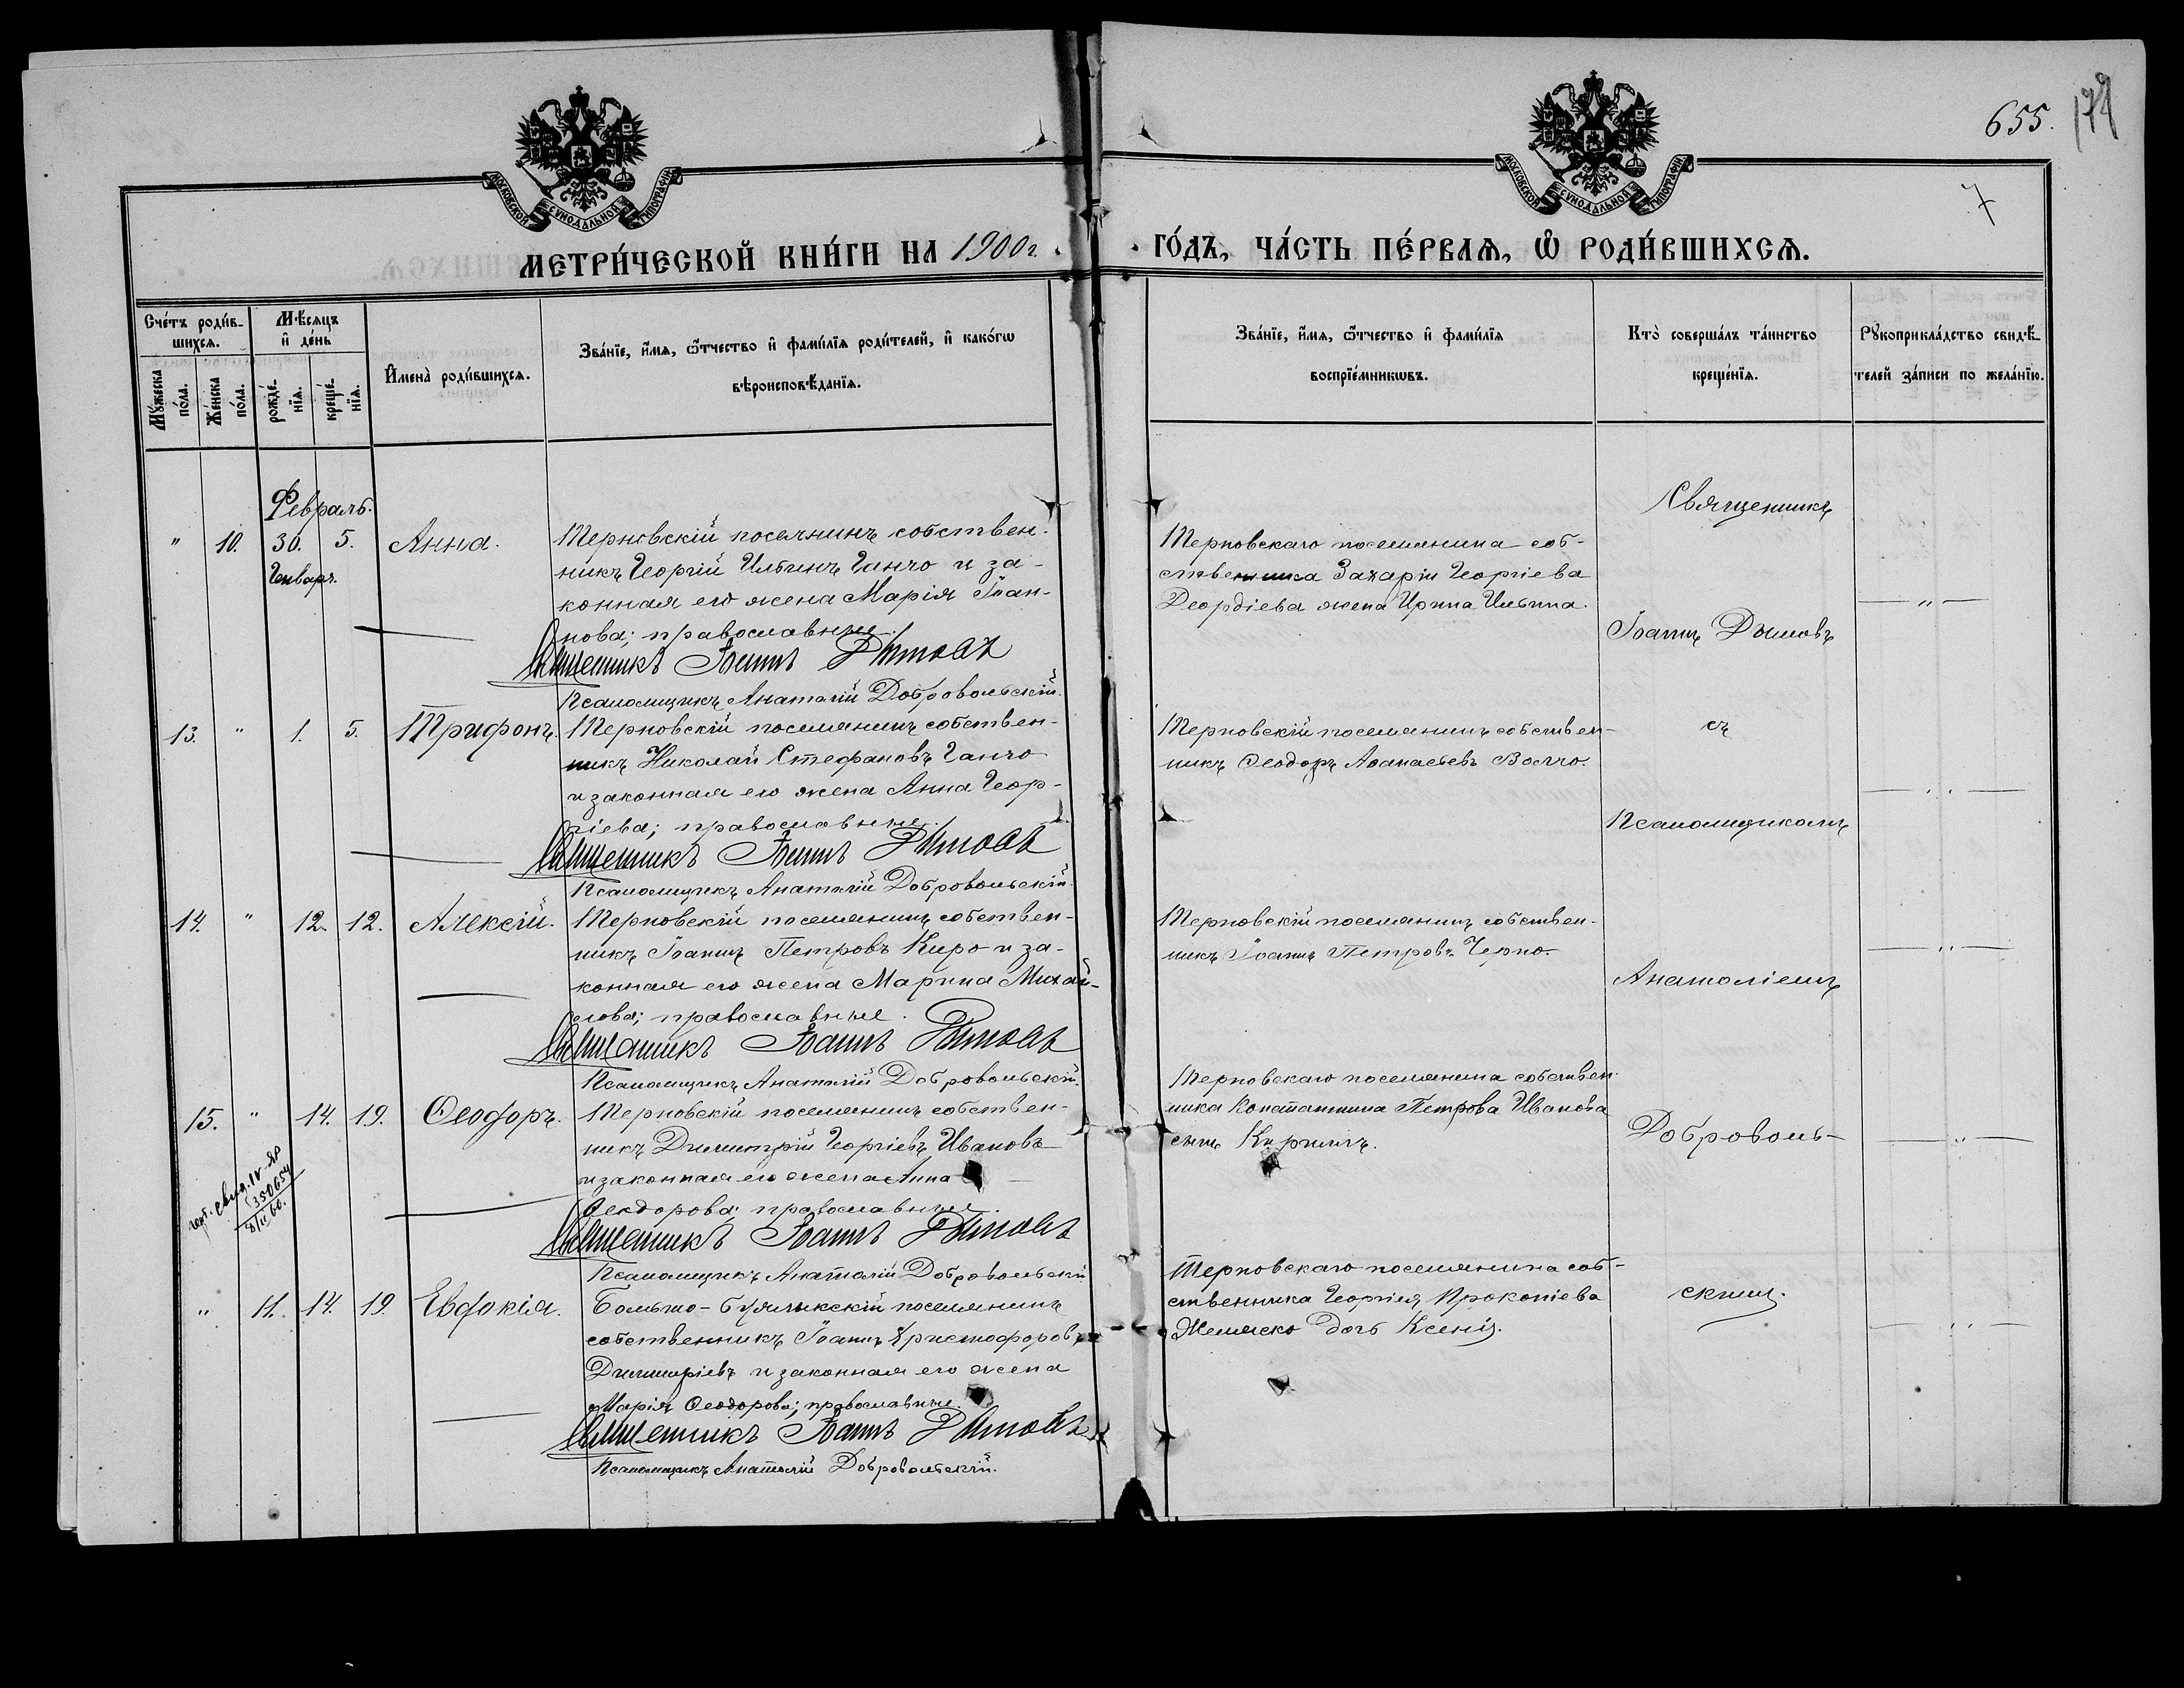 МОСКОВСКОЙ СѴНОДАЛЬНОЙ ТИПОГРАФІИ
МОСКОВСКОЙ СѴНОДАЛЬНОЙ ТИПОГРАФІИ
655.
7
МЕТРИ́ЧЕСКОЙ КНИ́ГИ НА 1900 г.
ГО́ДЪ, ЧА́СТЬ ПЕ́РВАѦ, Ѡ҆ РОДИ́ВШИХСѦ.
Сче́тъ роди́в-
шихсѧ.
Мꙋ́жеска
по́ла.
Же́нска
по́ла.
Мѣ́сѧцъ
и҆ де́нь
рожде́-
нїѧ.
креще́-
нїѧ.
И҆мена̀ роди́вшихсѧ.
Зва́нїе, и҆́мѧ, ѻ҆́тчество и҆ фами́лїѧ роди́телей, и҆ како́гѡ
вѣроисповѣ́данїѧ.
Зва́нїе, и҆́мѧ, ѻ҆́тчество и҆ фами́лїѧ
воспрїе́мникѡвъ.
Кто̀ соверша́лъ та́инство
креще́нїѧ.
Рꙋкоприкла́дство свидѣ́-
телей за́писи по жела́нїю.
Февраль.
" 10. 30. 5. Анна.
Генваря.
Терновскій поселянинъ собствен-
никъ Георгій Ильинъ Ганчо и за-
конная его жена Марія Іоан-
нова; православные.
Священникъ Іоаннъ Дымовъ
Псаломщикъ Анатолій Добровольскій.
Терновскаго поселянина соб-
ственника Захарія Георгіева
Деордіева жена Ирина Ильина.
Священникъ
Іоаннъ Дымовъ
— " —
13. " 1. 5. Трифонъ.
Терновскій поселянинъ собствен-
никъ Николай Стефановъ Ганчо
и законная его жена Анна Геор-
гіева; православные.
Священникъ Іоаннъ Дымовъ
Псаломщикъ Анатолій Добровольскій.
Терновскій поселянинъ собствен-
никъ Ѳеодоръ Аѳанасьевъ Волчо.
съ
Псаломщикомъ
— " —
14. " 12. 12. Алексій.
Терновскій поселянинъ собствен-
никъ Іоаннъ Петровъ Киро и за-
конная его жена Марина Михай-
лова; православные.
Священникъ Іоаннъ Дымовъ
Псаломщикъ Анатолій Добровольскій.
Терновскій поселянинъ собствен-
никъ Іоаннъ Петровъ Черно.
Анатоліемъ
— " —
15. " 14. 19. Ѳеодоръ.
Терновскій поселянинъ собствен-
никъ Димитрій Георгіевъ Ивановъ
и законная его жена Анна
Ѳеодорова; православные.
Священникъ Іоаннъ Дымовъ
Псаломщикъ Анатолій Добровольскій
Терновскаго поселянина собствен-
ника Константина Петрова Иванова
сынъ Кириллъ.
Доброволь-
— " —
" 11. 14. 19. Евдокія.
Больто-Буялыкскій поселянинъ
собственникъ Іоаннъ Христофоровъ
Димитріевъ и законная его жена
Марія Ѳеодорова; православные.
Священникъ Іоаннъ Дымовъ
Псаломщикъ Анатолій Добровольскій.
Терновскаго поселянина соб-
ственника Георгія Прокопіева
Желяско дочь Ксенія.
скимъ.
— " —